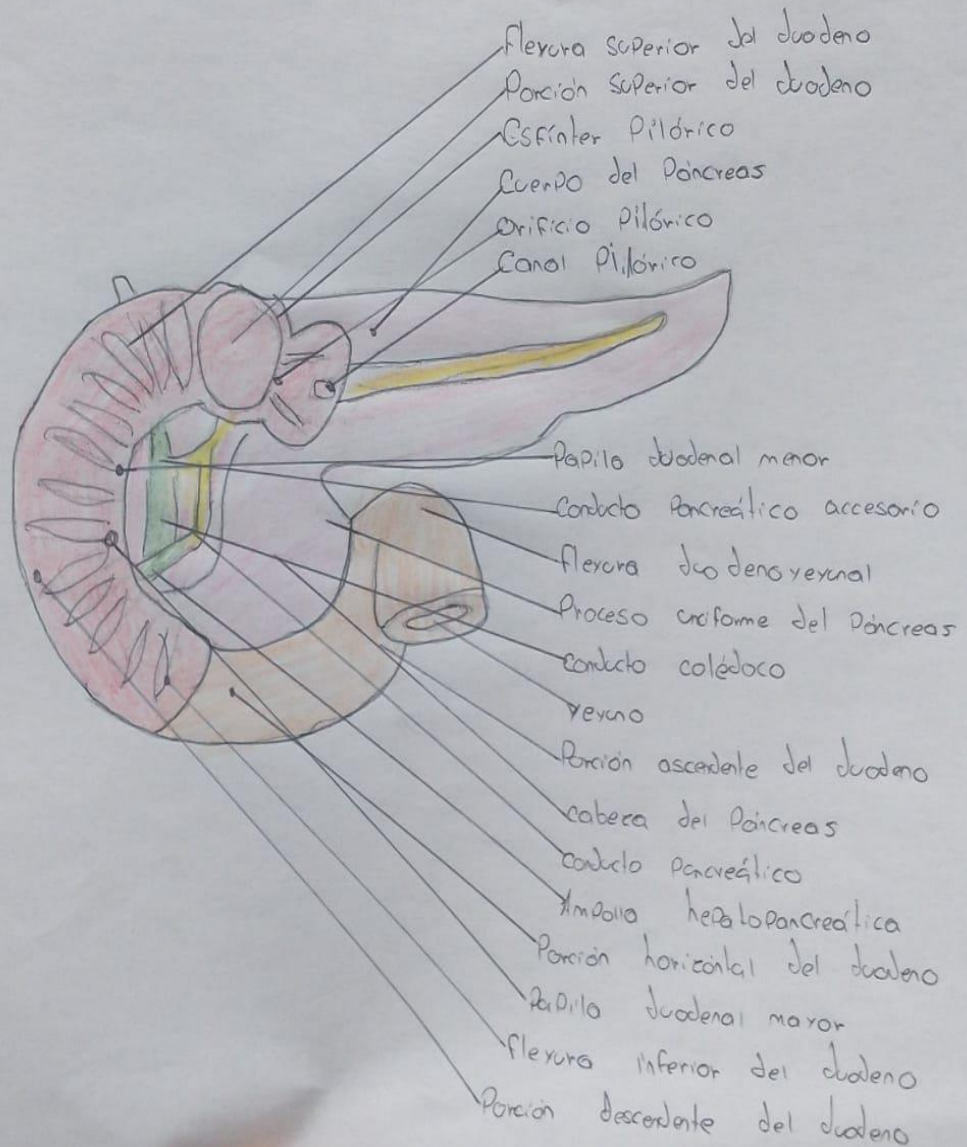 flexura superior del duodeno
Porción superior del duodeno
Esfínter Pilórico
Cuerpo del Páncreas
Orificio Pilórico
Canal Pilórico
Papila duodenal menor
Conducto Pancreático accesorio
flexura duodenoyeyunal
Proceso unciforme del Páncreas
Conducto colédoco
Yeyuno
Porción ascendente del duodeno
cabeza del Páncreas
Conducto pancreático
Ampolla hepatopancreática
Porción horizontal del duodeno
Papila duodenal mayor
flexura inferior del duodeno
Porción descendente del duodeno